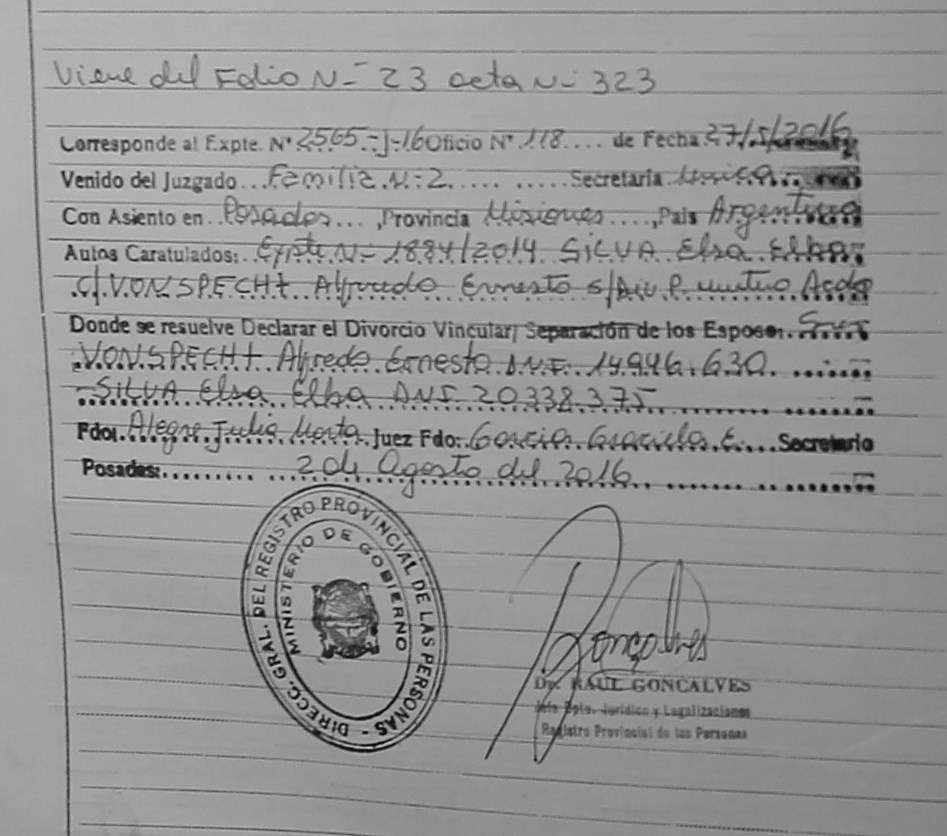 Viene del Folio N- 23 acta N- 323
Corresponde al Expte. N° 2565-J-16 Oficio N° 118.... de Fecha 27/5/2016
Venido del Juzgado... Familia N-2..... ......Secretaria Unica...
Con Asiento en ..Posadas...., Provincia Misiones....., Pais Argentina
Autos Caratulados: Expte N- 1884/2014 SILVA Elsa Elba
c/ VONSPECHt Alfredo Ernesto s/Div. P. mutuo Acdo
Donde se resuelve Declarar el Divorcio Vincular/ Separación de los Esposos
VONSPECHt Alfredo Ernesto D.N.I. 14.946.630.
SILVA Elsa Elba DNI 20.338.375
Fdo: Alegre Julia Marta Juez Fdo: Garcia Graciela E.... Secretario
Posadas:......... 2 de Agosto del 2016
DIRECC. GRAL. DEL REGISTRO PROVINCIAL DE LAS PERSONAS -
MINISTERIO DE GOBIERNO
Goncalves
Dr. RAUL GONCALVES
Jefe Dpto. Jurídico y Legalizaciones
Registro Provincial de las Personas